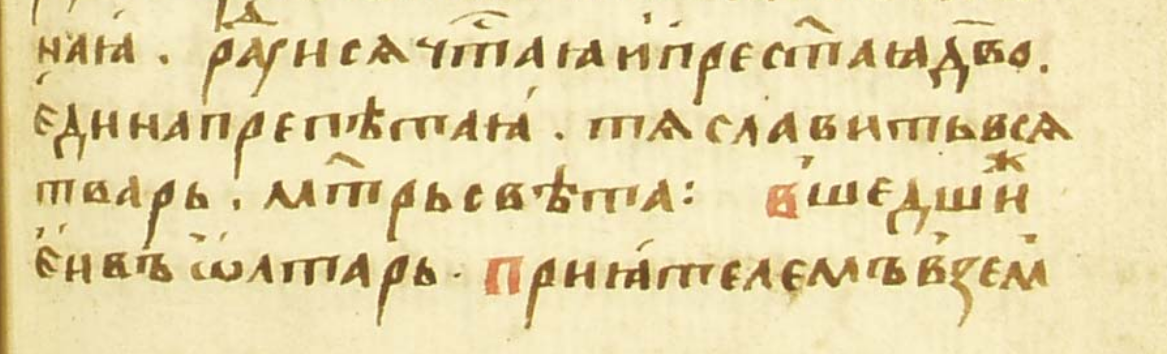 наꙗ . раⷣуисѧ чт҃аꙗ и прест҃аꙗ дв҃о .
єдина препѣтаꙗ . тѧ славить всѧ
тварь . мт҃рь свѣта : вшедшиⷤ
єи въ ѡлтарь . приꙗтелемъ взем